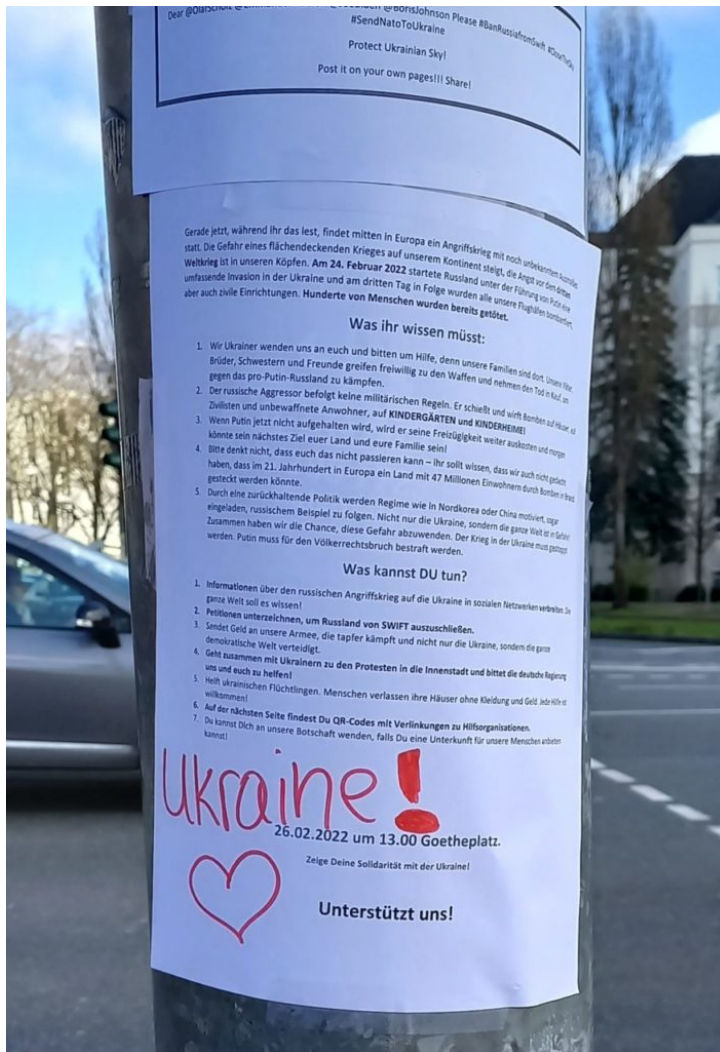 Dear @OlafScholz @BorisJohnson Please #BanRussiafromSwift #CloseTheSky
#SendNatoToUkraine
Protect Ukrainian Sky!
Post it on your own pages!!! Share!
Gerade jetzt, während ihr das lest, findet mitten in Europa ein Angriffskrieg mit noch unbekanntem
statt. Die Gefahr eines flächendeckenden Krieges auf unserem Kontinent steigt, die Angst vor dem dritten
Weltkrieg ist in unseren Köpfen. Am 24. Februar 2022 startete Russland unter der Führung von Putin eine
umfassende Invasion in der Ukraine und am dritten Tag in Folge wurden alle unsere Flughäfen bombardiert,
aber auch zivile Einrichtungen. Hunderte von Menschen wurden bereits getötet.
Was ihr wissen müsst:
1. Wir Ukrainer wenden uns an euch und bitten um Hilfe, denn unsere Familien sind dort. Unsere Väter,
Brüder, Schwestern und Freunde greifen freiwillig zu den Waffen und nehmen den Tod in Kauf, um
gegen das pro-Putin-Russland zu kämpfen.
2. Der russische Aggressor befolgt keine militärischen Regeln. Er schießt und wirft Bomben auf Häuser, auf
Zivilisten und unbewaffnete Anwohner, auf KINDERGÄRTEN und KINDERHEIME!
3. Wenn Putin jetzt nicht aufgehalten wird, wird er seine Freizügigkeit weiter auskosten und morgen
könnte sein nächstes Ziel euer Land und eure Familie sein!
4. Bitte denkt nicht, dass euch das nicht passieren kann – ihr sollt wissen, dass wir auch nicht gedacht
haben, dass im 21. Jahrhundert in Europa ein Land mit 47 Millionen Einwohnern durch Bomben in Brand
gesteckt werden könnte.
5. Durch eine zurückhaltende Politik werden Regime wie in Nordkorea oder China motiviert, sogar
eingeladen, russischem Beispiel zu folgen. Nicht nur die Ukraine, sondern die ganze Welt ist in Gefahr!
Zusammen haben wir die Chance, diese Gefahr abzuwenden. Der Krieg in der Ukraine muss gestoppt
werden. Putin muss für den Völkerrechtsbruch bestraft werden.
Was kannst DU tun?
1. Informationen über den russischen Angriffskrieg auf die Ukraine in sozialen Netzwerken verbreiten. Die
ganze Welt soll es wissen!
2. Petitionen unterzeichnen, um Russland von SWIFT auszuschließen.
3. Sendet Geld an unsere Armee, die tapfer kämpft und nicht nur die Ukraine, sondern die ganze
demokratische Welt verteidigt.
4. Geht zusammen mit Ukrainern zu den Protesten in die Innenstadt und bittet die deutsche Regierung
uns und euch zu helfen!
5. Helft ukrainischen Flüchtlingen. Menschen verlassen ihre Häuser ohne Kleidung und Geld. Jede Hilfe ist
willkommen!
6. Auf der nächsten Seite findest Du QR-Codes mit Verlinkungen zu Hilfsorganisationen.
7. Du kannst Dich an unsere Botschaft wenden, falls Du eine Unterkunft für unsere Menschen anbieten
kannst!
Ukraine!
26.02.2022 um 13.00 Goetheplatz.
Zeige Deine Solidarität mit der Ukraine!
Unterstützt uns!